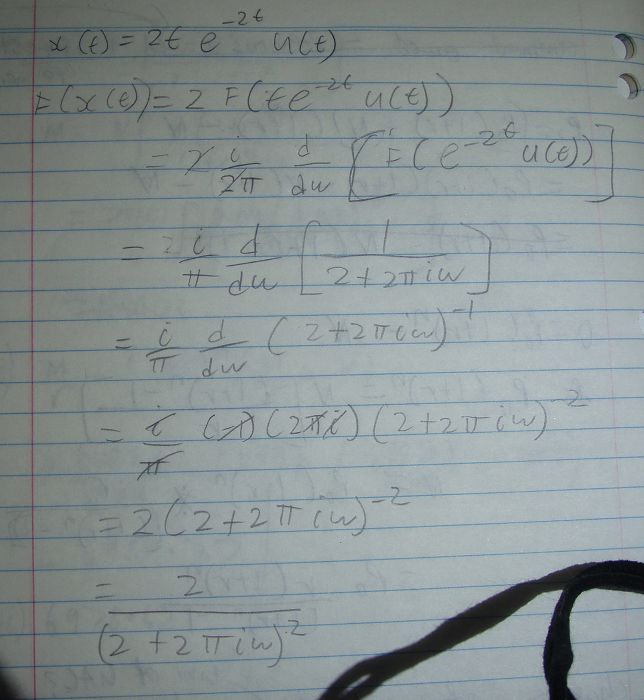 x(t) = 2t e^{-2t} u(t)
F(x(t)) = 2 F(te^{-2t} u(t))
= 2 i/2π d/dw [F(e^{-2t} u(t))]
= i/π d/dw [1/(2+2πiw)]
= i/π d/dw (2+2πiw)^{-1}
= i/π (-1)(2πi)(2+2πiw)^{-2}
= 2(2+2πiw)^{-2}
= 2/(2+2πiw)^2